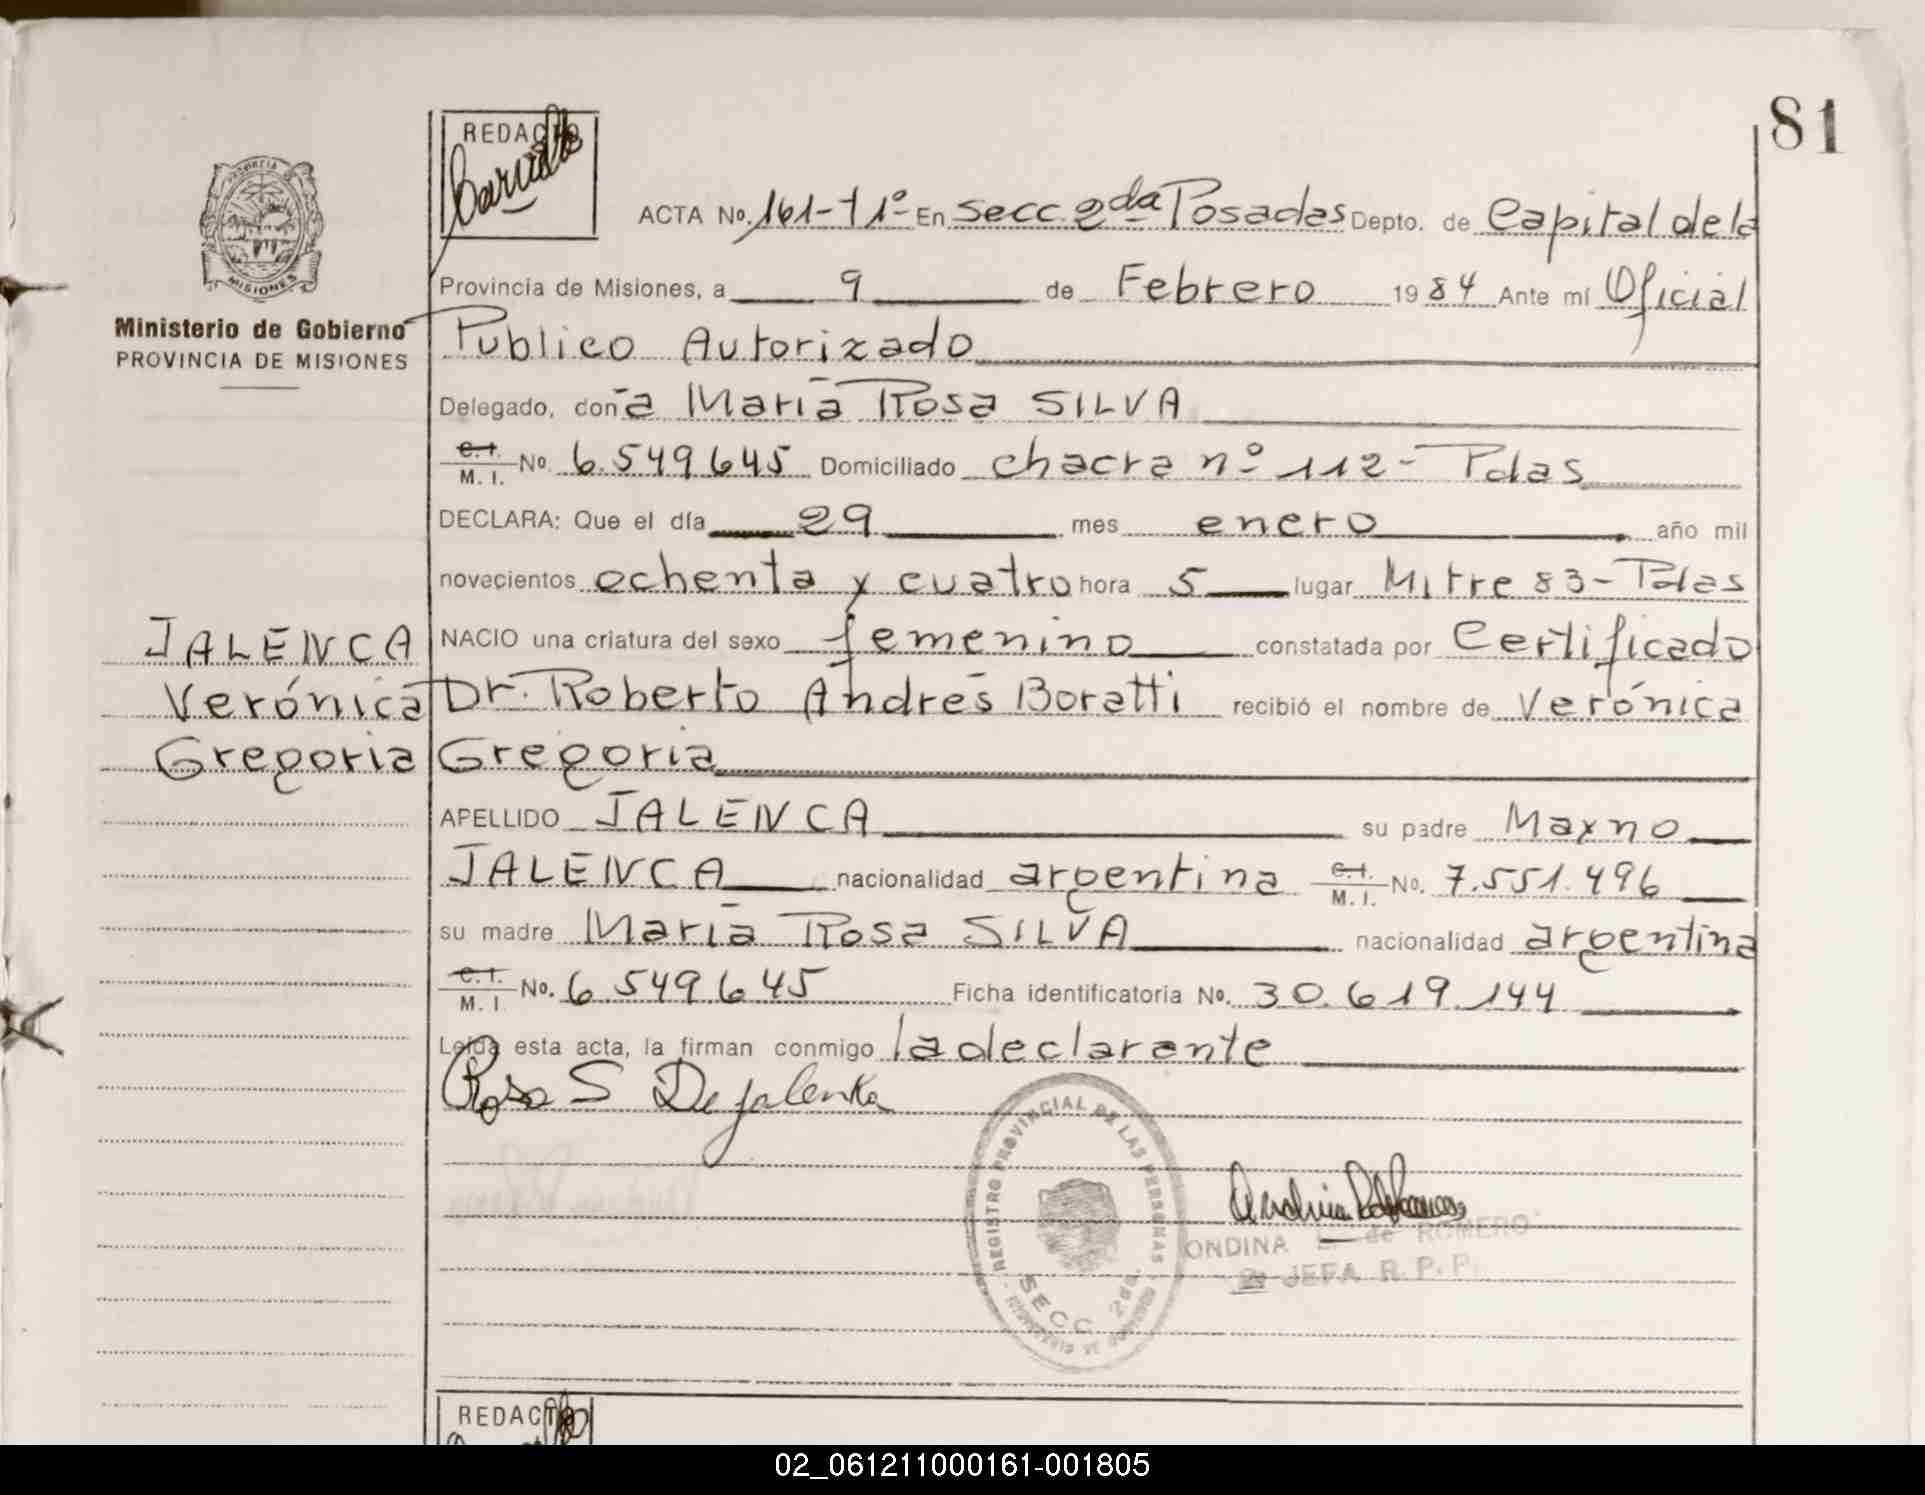 81
REDACTO
ACTA No. 161-T1º- En Secc. 2da Posadas Depto. de Capital de la
Provincia de Misiones, a 9 de Febrero 19 84 Ante mí Oficial
Ministerio de Gobierno
PROVINCIA DE MISIONES
MISIONES
Publico Autorizado
Delegado, don̄a María Rosa SILVA
C.I. M. I. No. 6.549645 Domiciliado chacra nº 112- Pdas
DECLARA: Que el día 29 mes enero año mil
novecientos ochenta y cuatro hora 5 lugar Mitre 83- Pdas
JALENCA
Verónica
Gregoria
NACIO una criatura del sexo femenino constatada por Certificado
Dr. Roberto Andrés Boratti recibió el nombre de Verónica
Gregoria
APELLIDO JALENCA su padre Maxno
JALENCA nacionalidad argentina C.I. M. I. No. 7.551.496
su madre María Rosa SILVA nacionalidad argentina
C.I. M. I. No. 6.549.645 Ficha identificatoria No. 30.619.144
Leída esta acta, la firman conmigo la declarante
Rosa S De Jalenka
REGISTRO PROVINCIAL DE LAS PERSONAS
SECC 2da.
ONDINA L. de ROMERO
JEFA R. P. P.
REDACTO
02_061211000161-001805